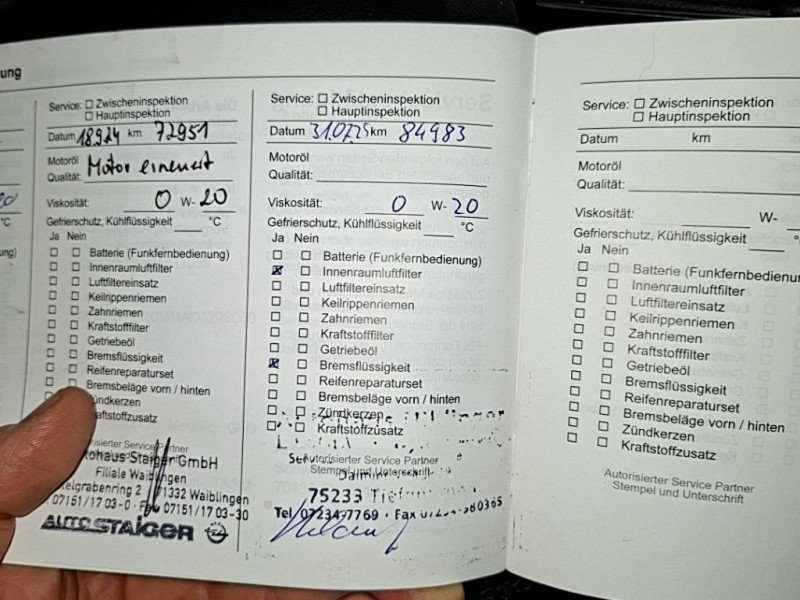 ung
Service: Zwischeninspektion
Hauptinspektion
Datum 18.9.24 km 72951
Motoröl
Qualität: Motor erneuert
Viskosität: 0 W- 20
Gefrierschutz, Kühlflüssigkeit °C
Ja Nein
Batterie (Funkfernbedienung)
Innenraumluftfilter
Luftfiltereinsatz
Keilrippenriemen
Zahnriemen
Kraftstofffilter
Getriebeöl
Bremsflüssigkeit
Reifenreparaturset
Bremsbeläge vorn / hinten
Zündkerzen
aftstoffzusatz
risierter Service Partner
tohaus Staiger GmbH
Filiale Waiblingen
elgrabenring 2 71332 Waiblingen
07151/17 03-0 · Fax 07151/17 03-30
AUTO STAIGER
Service: Zwischeninspektion
Hauptinspektion
Datum 31.07.25 km 84983
Motoröl
Qualität:
Viskosität: 0 W- 20
Gefrierschutz, Kühlflüssigkeit °C
Ja Nein
Batterie (Funkfernbedienung)
Innenraumluftfilter
Luftfiltereinsatz
Keilrippenriemen
Zahnriemen
Kraftstofffilter
Getriebeöl
Bremsflüssigkeit
Reifenreparaturset
Bremsbeläge vorn / hinten
Zündkerzen
Kraftstoffzusatz
Autorisierter Service Partner
Stempel und Unterschrift
75233
Tel 07234-7769 · Fax
Service: Zwischeninspektion
Hauptinspektion
Datum km
Motoröl
Qualität:
Viskosität: W-
Gefrierschutz, Kühlflüssigkeit °C
Ja Nein
Batterie (Funkfernbedienun
Innenraumluftfilter
Luftfiltereinsatz
Keilrippenriemen
Zahnriemen
Kraftstofffilter
Getriebeöl
Bremsflüssigkeit
Reifenreparaturset
Bremsbeläge vorn / hinten
Zündkerzen
Kraftstoffzusatz
Autorisierter Service Partner
Stempel und Unterschrift